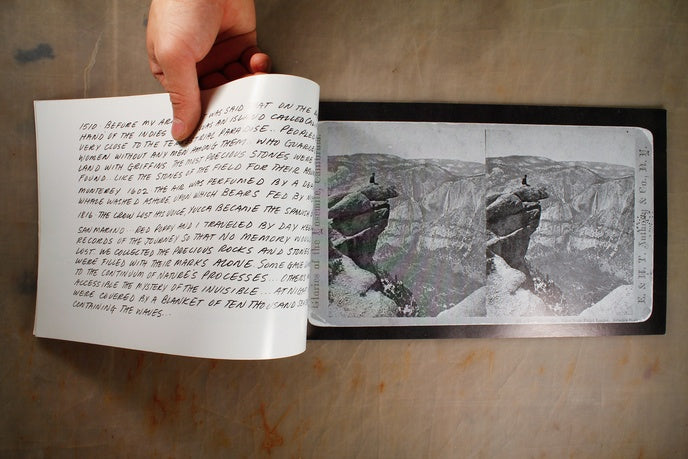 1510 BEFORE MY WAS SAID AT ON THE
HAND OF THE INDIES AN ISLAND CALLED CAL
VERY CLOSE TO THE PARADISE.. PEOPLE
WOMEN WITHOUT ANY MEN AMONG THEM. WHO GUARDE
LAND WITH GRIFFINS THE MOST PRECIOUS STONES WERE
FOUND.. LIKE THE STONES OF THE FIELD FOR THEIR
MONTEREY 1602 THE AIR WAS PERFUMED BY A
WHALE WASHED ASHORE UPON WHICH BEARS FED BY
1816 THE CROW LOST HIS VOICE, YUCCA BECAME THE SPANISH
SAN MARINO: RED PONY AND I TRAVELED BY DAY
RECORDS OF THE JOURNEY SO THAT NO MEMORY
LOST WE COLLECTED THE PRECIOUS ROCKS AND STONES
WERE FILLED WITH THEIR MARKS ALONE SOME GAVE
TO THE CONTINUUM OF NATURE'S PROCESSES... OTHERS
ACCESSIBLE THE MYSTERY OF THE INVISIBLE ... AT NIGHT
WERE COVERED BY A BLANKET OF TEN THOUSAND
CONTAINING THE WAVES...
of the Yosemite
E. & H. T. Anthony & Co., N. Y.